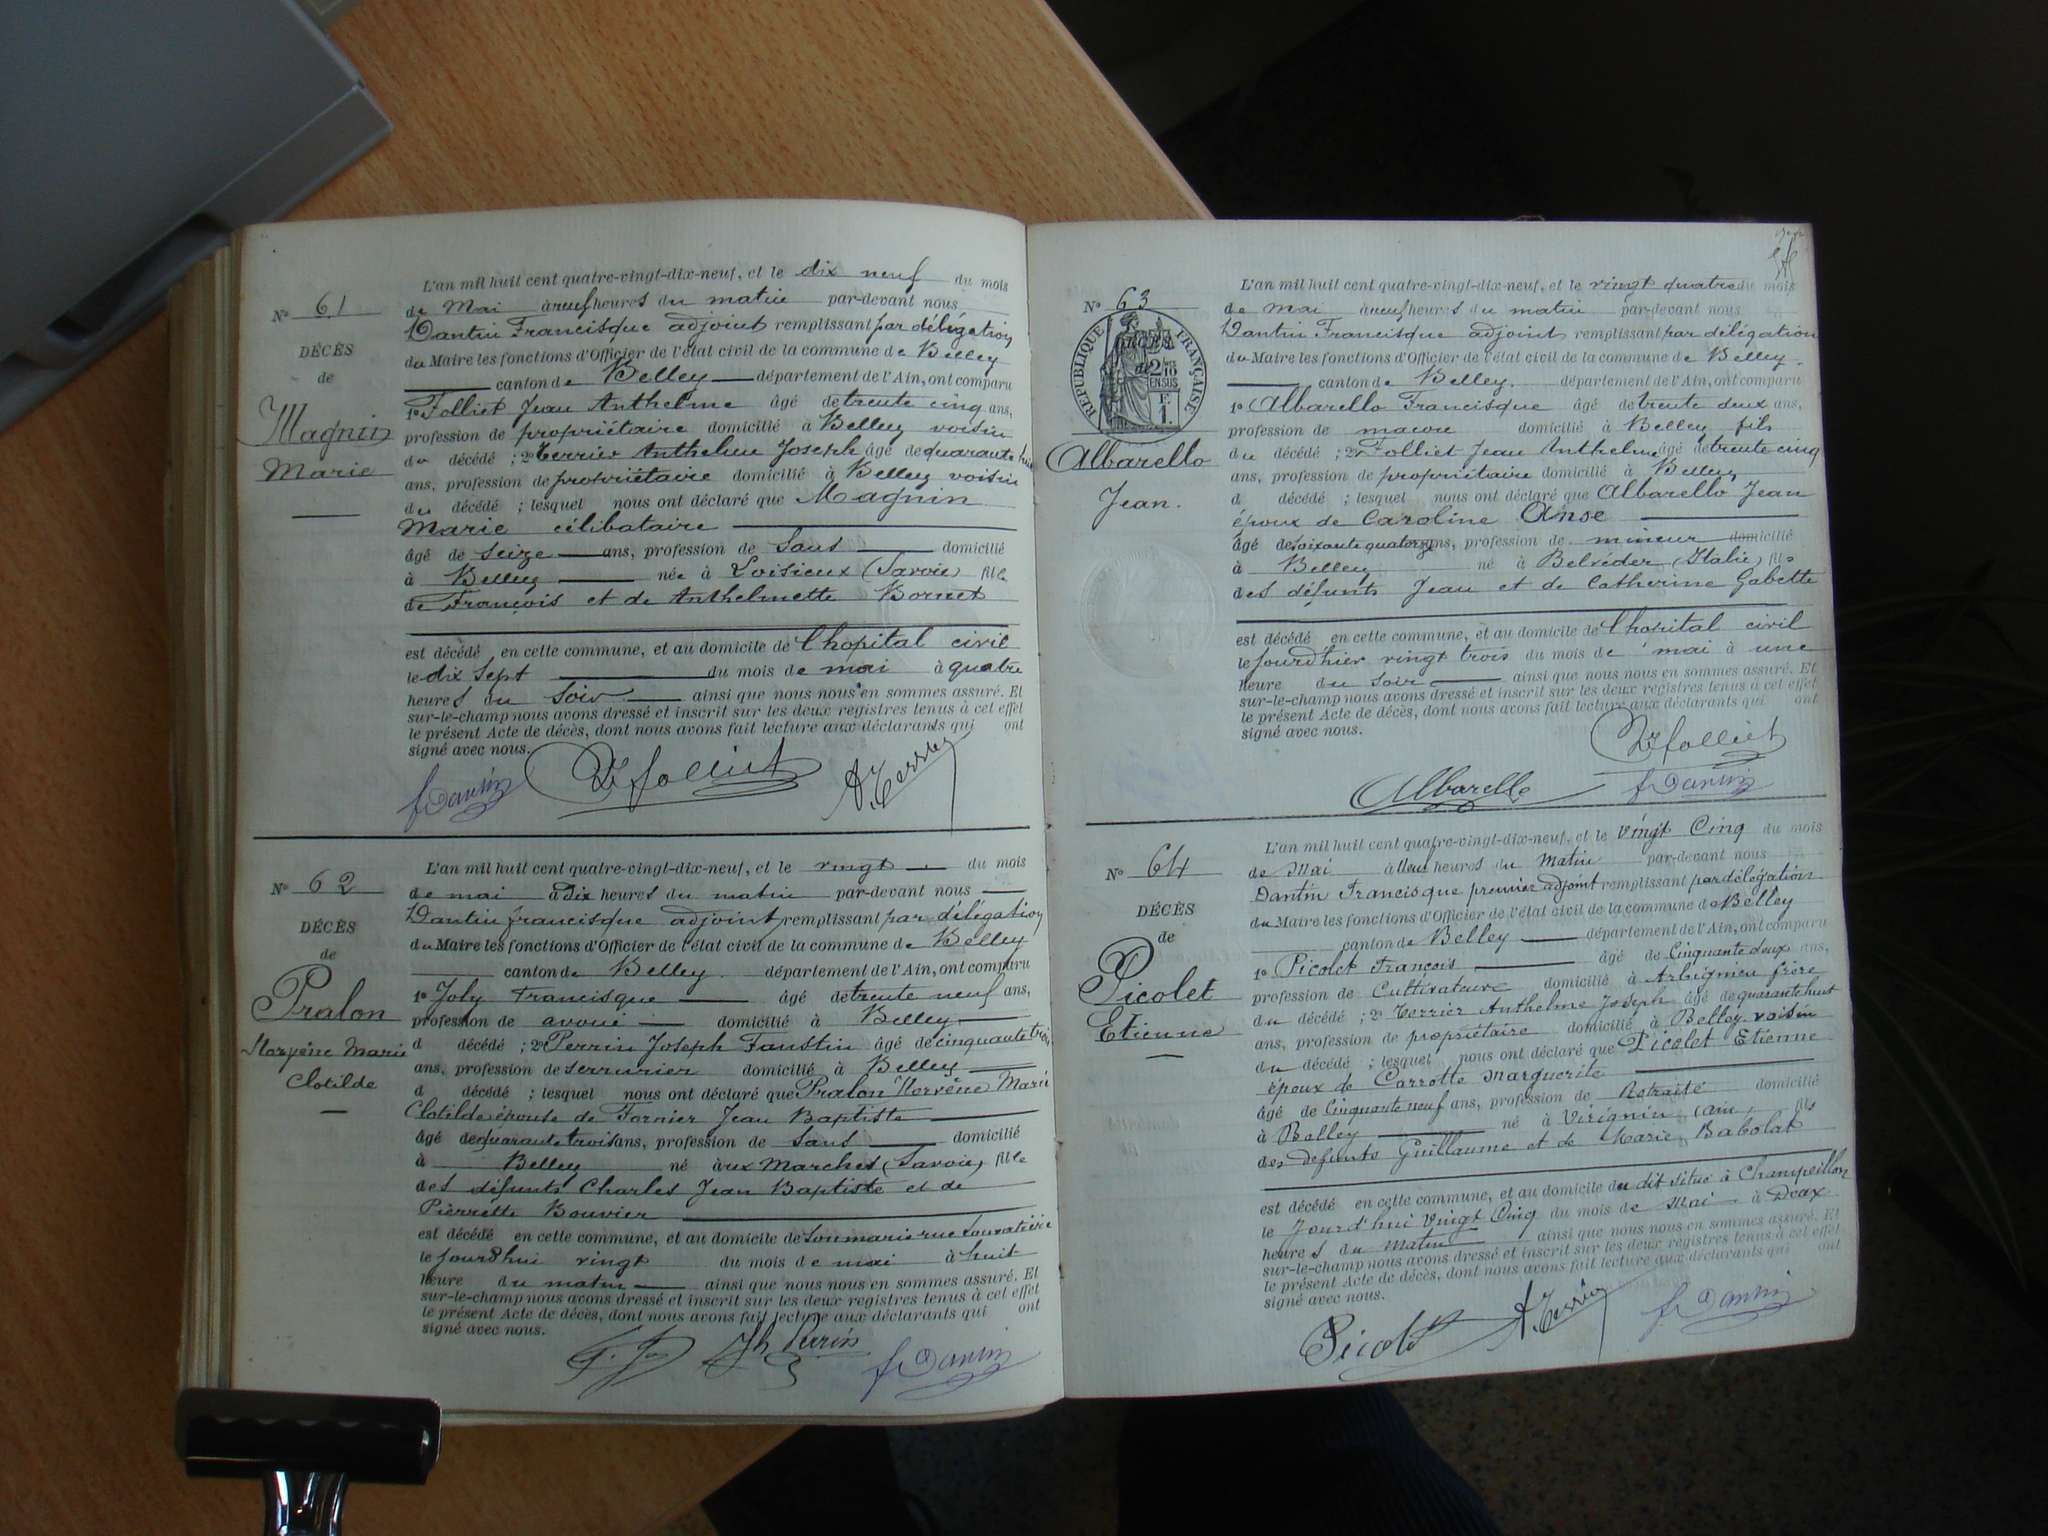 L'an mil huit cent quatre-vingt-dix-neuf, et le dix neuf du mois
N° 61
de Mai à neuf heures du matin par-devant nous
Dantin Francisque adjoint remplissant par délégation
DÉCÈS
du Maire les fonctions d'Officier de l'état civil de la commune de Belley
de
canton de Belley département de l'Ain, ont comparu
Magnin
1° Folliet Jean Anthelme âgé de trente cinq ans,
profession de propriétaire domicilié à Belley voisin
Marie
du décédé ; 2° Terrier Anthelme Joseph âgé de quarante huit
ans, profession de propriétaire domicilié à Belley voisin
du décédé ; lesquel nous ont déclaré que Magnin
Marie célibataire
âgé de seize ans, profession de Sans domicilié
à Belley née à Loisieux (Savoie) fille
de François et de Anthelmette Bornet
est décédé en cette commune, et au domicile de l'hopital civil
le dix sept du mois de mai à quatre
heures du soir ainsi que nous nous en sommes assuré. Et
sur-le-champ nous avons dressé et inscrit sur les deux registres tenus à cet effet
le présent Acte de décès, dont nous avons fait lecture aux déclarants qui ont
signé avec nous.
f Dantin Folliet A. Terrier
L'an mil huit cent quatre-vingt-dix-neuf, et le vingt du mois
N° 62
de mai à Dix heures du matin par-devant nous
Dantin francisque adjoint remplissant par délégation
DÉCÈS
du Maire les fonctions d'Officier de l'état civil de la commune de Belley
de
canton de Belley département de l'Ain, ont comparu
Pralon
1° Joly Francisque âgé de trente neuf ans,
profession de avoué domicilié à Belley
Marie
d décédé ; 2° Perrin Joseph Faustin âgé de cinquante trois
Clotilde
ans, profession de serrurier domicilié à Belley
d décédé ; lesquel nous ont déclaré que Pralon Marie
Clotilde épouse de Fornier Jean Baptiste
âgé de quarante trois ans, profession de Sans domicilié
à Belley né aux Marches (Savoie) fille
des défunts Charles Jean Baptiste et de
Pierrette Bouvier
est décédé en cette commune, et au domicile de son mari rue
le jourd'hui vingt du mois de mai à huit
heure du matin ainsi que nous nous en sommes assuré. Et
sur-le-champ nous avons dressé et inscrit sur les deux registres tenus à cet effet
le présent Acte de décès, dont nous avons fait lecture aux déclarants qui ont
signé avec nous.
Jh Perrin f Dantin
L'an mil huit cent quatre-vingt-dix-neuf, et le vingt quatre du mois
N° 63
de mai à neuf heures du matin par-devant nous
REPUBLIQUE FRANÇAISE
Dantin Francisque adjoint remplissant par délégation
du Maire les fonctions d'Officier de l'état civil de la commune de Belley
canton de Belley. département de l'Ain, ont comparu
1° Albarello Francisque âgé de trente deux ans,
profession de macon domicilié à Belley fils
Albarello
du décédé ; 2° Folliet Jean Anthelme âgé de trente cinq
ans, profession de propriétaire domicilié à Belley
Jean.
d décédé ; lesquel nous ont déclaré que Albarello Jean
époux de Caroline Anse
âgé de soixante quatorze ans, profession de mineur domicilié
à Belley né à Belvéder (Italie) fils
des défunts Jean et de Catherine Gabette
est décédé en cette commune, et au domicile de l'hopital civil
le jourd'hier vingt trois du mois de mai à une
heure du soir ainsi que nous nous en sommes assuré. Et
sur-le-champ nous avons dressé et inscrit sur les deux registres tenus à cet effet
le présent Acte de décès, dont nous avons fait lecture aux déclarants qui ont
signé avec nous.
Folliet
Albarello f Dantin
L'an mil huit cent quatre-vingt-dix-neuf, et le Vingt Cinq du mois
N° 64
de Mai à Neuf heures du Matin par-devant nous
Dantin Francisque premier adjoint remplissant par délégation
DÉCÈS
du Maire les fonctions d'Officier de l'état civil de la commune de Belley
de
canton de Belley département de l'Ain, ont comparu
Picolet
1° Picolet François âgé de Cinquante deux ans,
profession de Cultivateur domicilié à Arbignieu frère
Etienne
du décédé ; 2° Terrier Anthelme Joseph âgé de quarante huit
ans, profession de propriétaire domicilié à Belley voisin
du décédé ; lesquel nous ont déclaré que Picolet Etienne
époux de Carrotte Marguerite
âgé de Cinquante neuf ans, profession de Retraité domicilié
à Belley né à Virignin (Ain) fils
des defunts Guillaume et de Marie Babolat
est décédé en cette commune, et au domicile du dit situé à Champeillon
le Jourd'hui Vingt Cinq du mois de Mai à Deux
heures du Matin ainsi que nous nous en sommes assuré. Et
sur-le-champ nous avons dressé et inscrit sur les deux registres tenus à cet effet
le présent Acte de décès, dont nous avons fait lecture aux déclarants qui ont
signé avec nous.
Picolet A. Terrier f Dantin